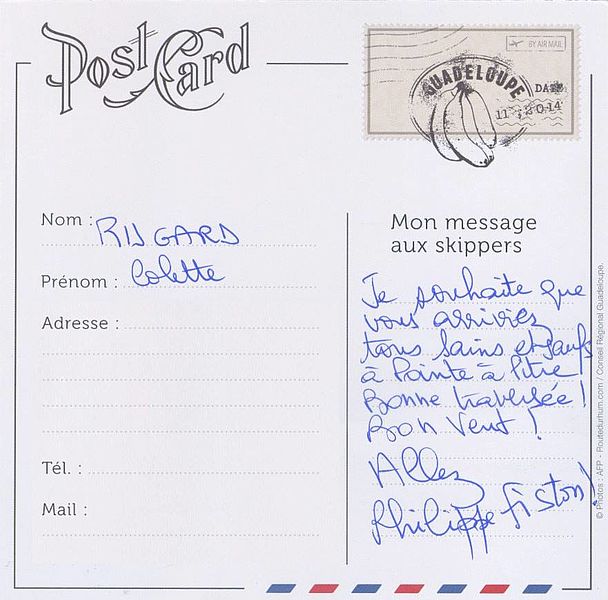 Post Card
BY AIR MAIL
GUADELOUPE
DATE
11, 2014
Nom : RIJGARD
Prénom : Colette
Adresse :
Tél. :
Mail :
Mon message
aux skippers
Je souhaite que
vous arriviez
tous sains et saufs
à Pointe à Pitre!
Bonne traversée!
Bon Vent!
Allez
Philippe Fiston!
© Photos : AFP - Routedurhum.com / Conseil Régional Guadeloupe.